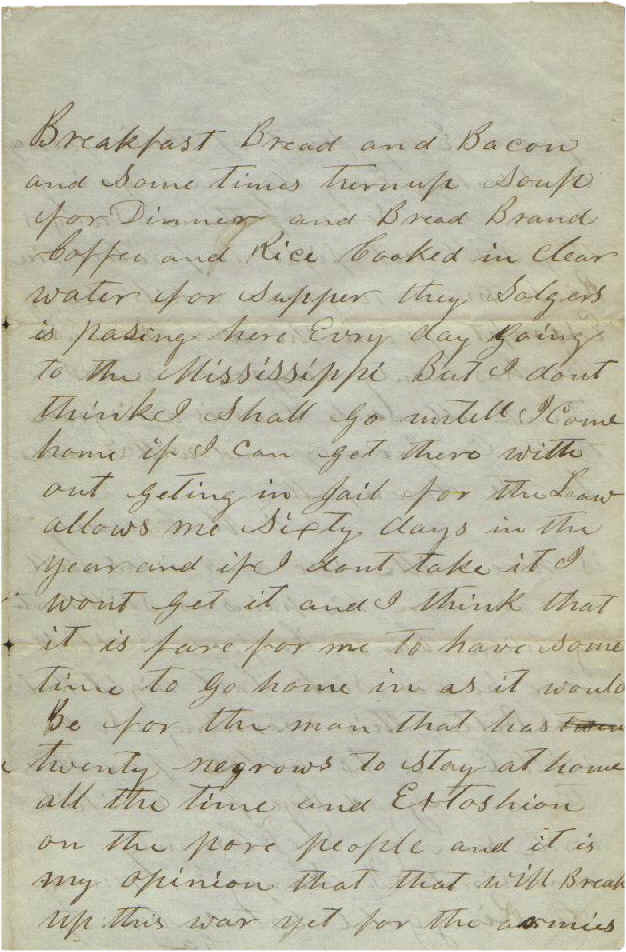 Breakfast Bread and Bacon
and Some times turnup Soup
for Dinner and Bread Brand
Coffee and Rice Cooked in Clear
water for supper they Solgers
is pasing here Evry day going
to the Mississippi But I dont
think I Shall go untell I Come
home if I can get there with
out geting in Jail for the Law
allows me Sixty days in the
year and if I dont take it I
wont get it and I think that
it is fare for me to have some
time to go home in as it would
Be for the man that has
twenty negrows to stay at home
all the time and Extoshion
on the pore people and it is
my opinion that that will Break
up this war yet for the armies